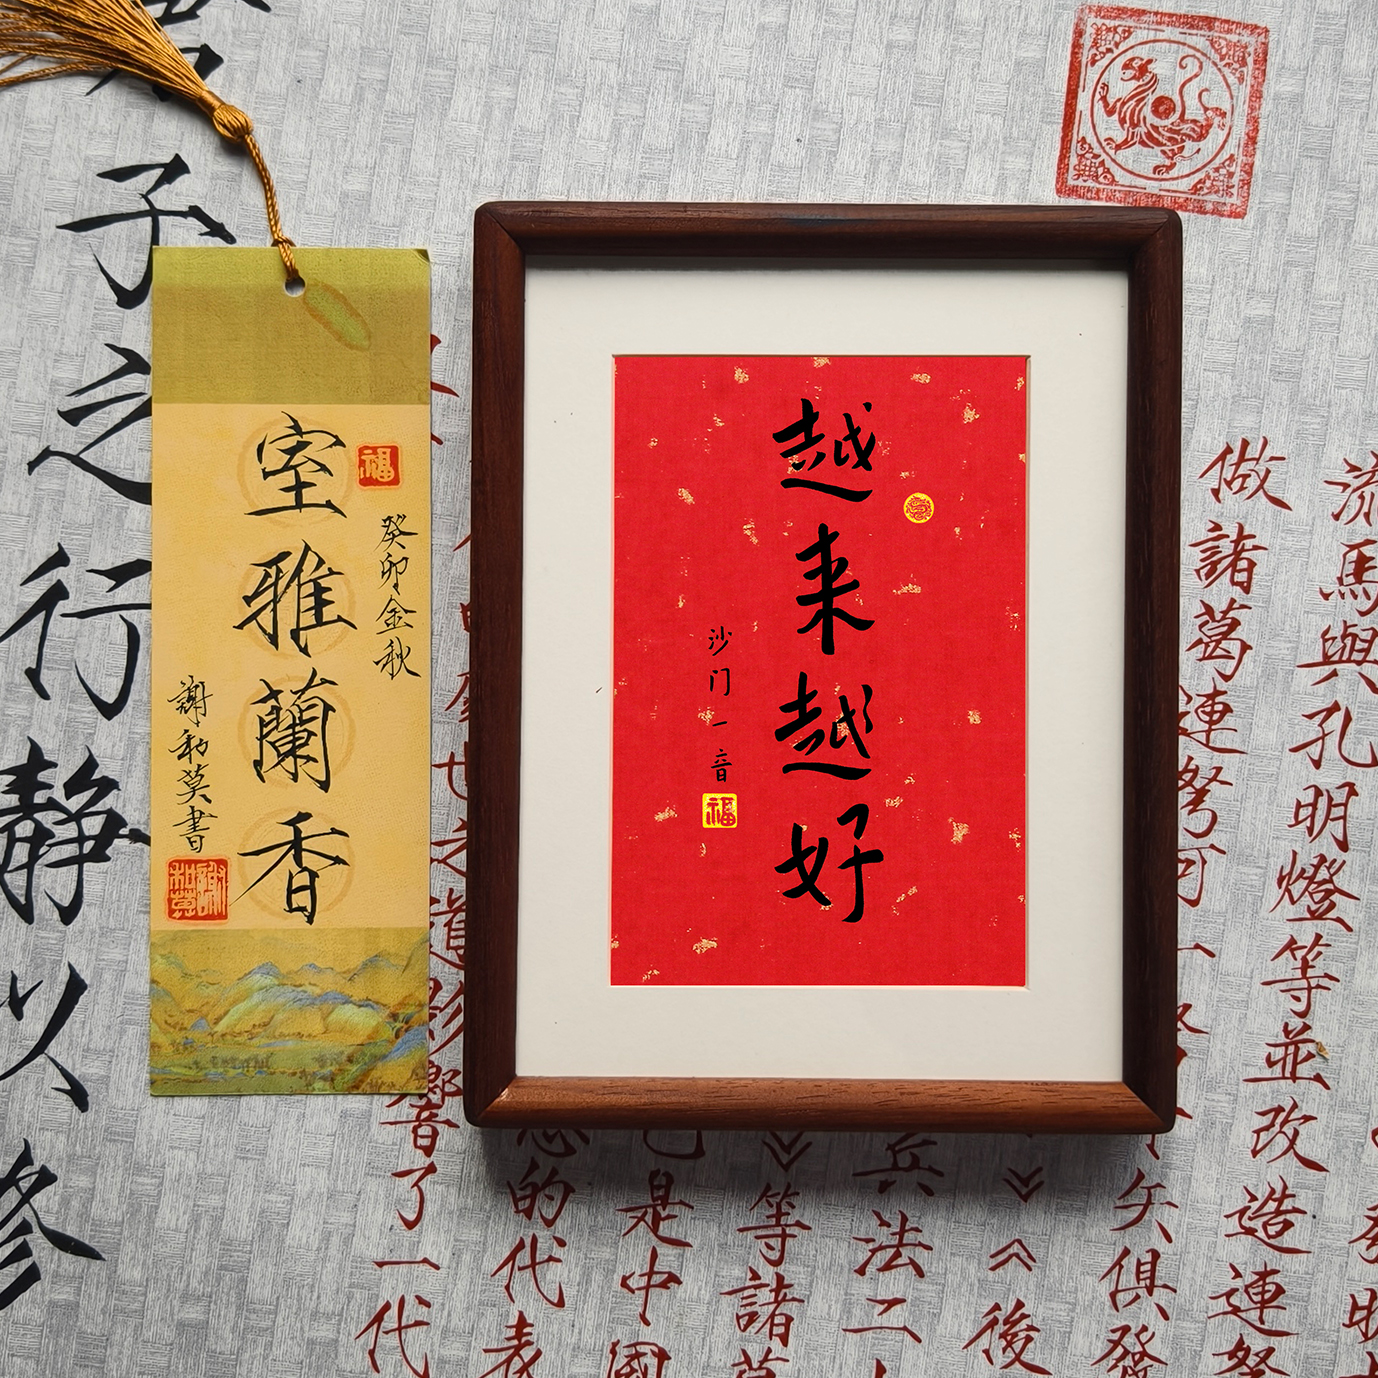 越来越好
沙门一音
福
福
癸卯金秋
室雅蘭香
謝和莫書
子之行静以修
流馬與孔明燈等並改造連弩
做諸葛連弩可一
矢俱發
《後
兵法二
》等諸葛
已是中國
的代表
響了一代